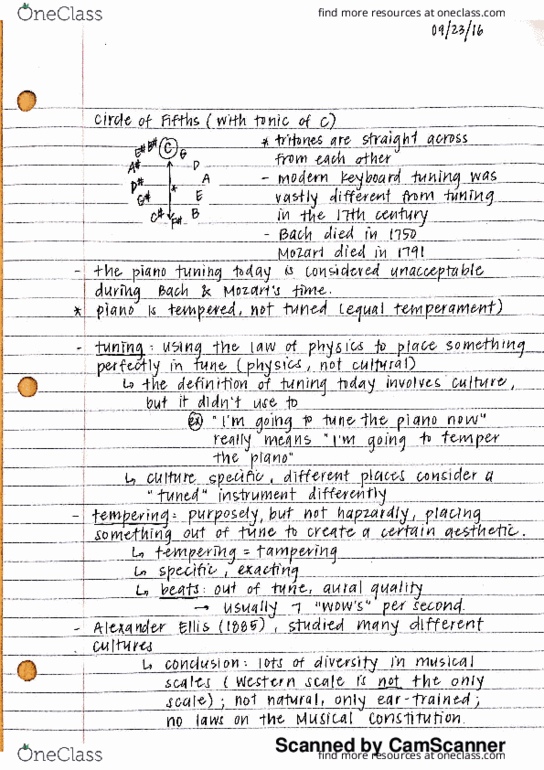 OneClass
find more resources at oneclass.com
09/23/16
circle of Fifths (with tonic of C)
E# B# C G
A# D
D# A
G# * E
C# F# B
* tritones are straight across
from each other
- modern keyboard tuning was
vastly different from tuning
in the 17th century
- Bach died in 1750
Mozart died in 1791
- the piano tuning today is considered unacceptable
during Bach & Mozart's time.
* piano is tempered, not tuned (equal temperament)
- tuning: using the law of physics to place something
perfectly in tune (physics, not cultural)
↳ the definition of tuning today involves culture,
but it didn't use to
ex "I'm going to tune the piano now"
really means "I'm going to temper
the piano"
↳ culture specific, different places consider a
"tuned" instrument differently
- tempering: purposely, but not hapzardly, placing
something out of tune to create a certain aesthetic.
↳ tempering = tampering
↳ specific, exacting
↳ beats: out of tune, aural quality
→ usually 7 "wow's" per second.
- Alexander Ellis (1885), studied many different
cultures
↳ conclusion: lots of diversity in musical
scales (Western scale is not the only
scale); not natural, only ear-trained;
no laws on the Musical Constitution.
Scanned by CamScanner
OneClass
find more resources at oneclass.com